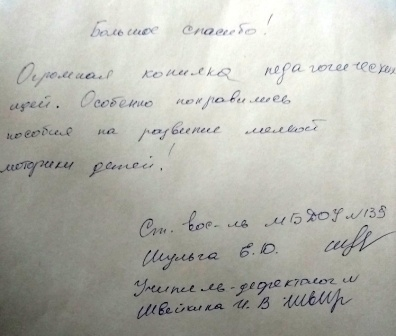 Большое спасибо!
Огромная копилка педагогических
идей. Особенно понравились
пособия на развитие мелкой
моторики детей!
Ст. вос-ль МБДОУ №133
Шульга Е.Ю.
Учитель-дефектолог
Швейкина И.В